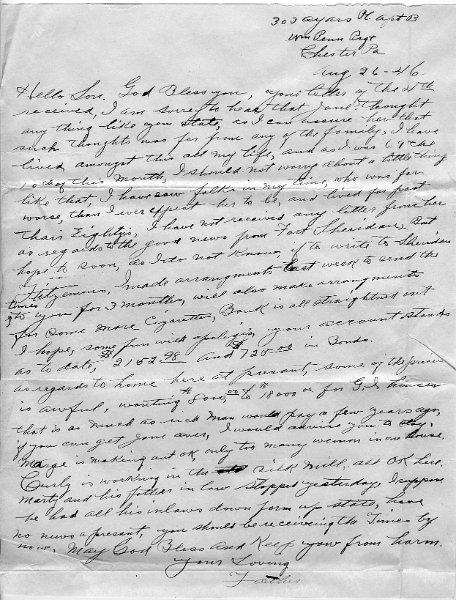 303 Ayars Pl Apt B
Wm Penn Prjt
Chester Pa
Aug 26-46
Hello Son. God Bless you, your letter of the
received, I am sorry to hear that Jane thought
any thing like you state, as I can assure her that
such thoughts was far from any of the family, I have
lived amongst this all my life, and as I was 69 the
10 of this Month, I should not worry about a little thing
like that, I have saw folks in my time, who was far
worse, than I ever expect her to be, and lived far past
thair Eightys, I have not received any letter from her
as regards to the good news from Fort Sheridan, But
hope to soon, as I do not know, if to write to Sheridan
or I made arrangements last week to send the
Times to you for 3 months, will also make arrangements
for some more Cigarettes, Bank is all straightened out
I hope, some fun with apologies, your account stands
as to date, $2162.98 And $725.00 in Bonds.
as regards to home here at present, some of the prices
is awful, wanting to $18000 for G.I. houses
that is as much as rich Man would pay a few years ago,
if you can get Jane over, I would advise you to stay,
Marge is making out OK only too many women in one house.
Curly is working in the silk Mill, all OK here.
Marty and his father in law stopped yesterday, I suppose
he had all his inlaws down form up state, have
no news a present, you should be receiving the Times by
now. May God Bless and Keep you from harm.
Your Loving
Father